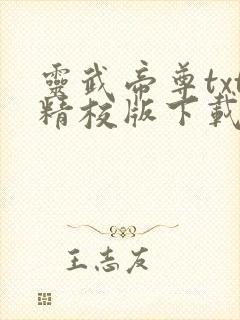 靈武帝尊txt
精校版下載
王志友